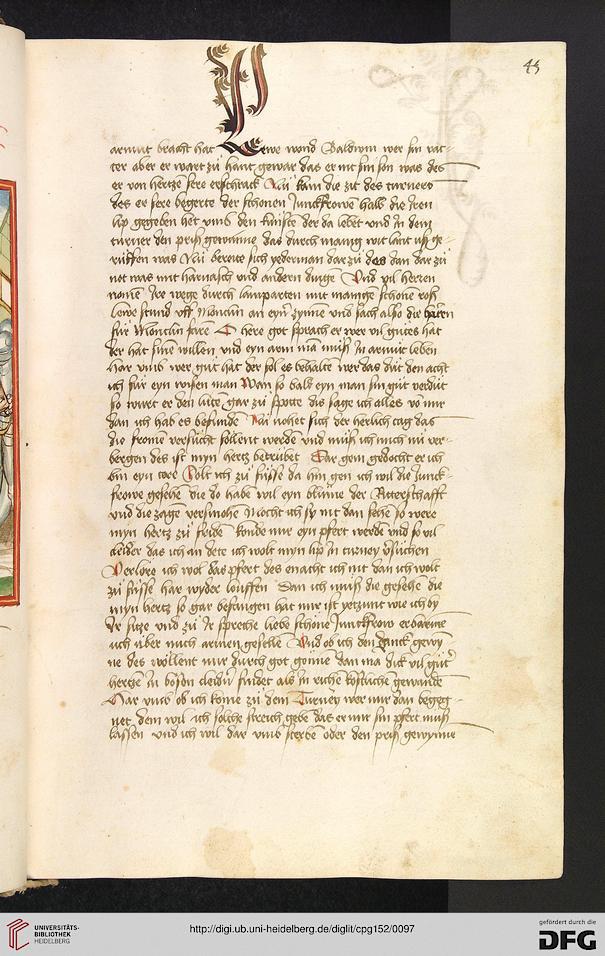 45
armut bracht hat Lewe wond Baldwin wer sin vat-
ter aber er wart zu hant gewar das er nit sin son was des
er von hertze sere erschrack Nu kam die zit des turners
des er sere begerte der schonen Junckfrowe halb die iren
lip gegeben het umb den kunste der da lebet und in dem
turner den priß gewunne das durch manig wit lant uß ge-
ruffen was Nu bereite sich yederman dar zu des dan dar zu
not was mit harnasch und andern dinge Und vil herren
nomen ire wege durch lamparten mit manige schone roß
Lewe stund uff Monclin an eyn zynne und sach also die herren
fur Monclin fare O here got sprach er wer vil gutes hat
der hat sine willen und eyn arm man muß in armut leben
Har umb wer gut hat der sol es behalte wer das dut den acht
ich fur eyn wisen man Wan so balt eyn man sin gut verdut
so wurt er den luten gar zu spotte das sage ich alles von mir
dan ich hab es befunde Nu nohet sich der herlich tag das
die frome versucht sollent werde und muß ich mich nu ver-
bergen des ist myn hertz betrubet Dar gem gedocht er ich
bin eyn tore Solt ich zu fusse da hin gen ich wil die Junck-
frowe gesehe die do habe wil eyn blume der Ritterschafft
und die zage versmohe Mocht ich sy nit dan sehe so were
myn hertz zu fride konde mir eyn pfert werde und so vil
cleider das ich an dete ich wolt myn lip in turney versuchen
Verlore ich wol das pfert des enacht ich nit dan ich wolt
zu fusse har wyder louffen Dan ich muß die gesehe die
myn hertz so gar befangen hat mir ist yetzunt wie ich by
Ir sitze und zu Ir spreche liebe schone Junckfrow erbarme
uch uber uch armen geselle Und ob ich den danck gewy
ne des wollent mir durch got gonne dan ma dick vil guter
hertze in bosen cleider findet als in riche kostliche gewande
Har umb ob ich kome zu dem Turney wer mir dan begeg-
net dem wil ich solche streich gebe das er mir sin pfert muß
lassen und ich wil dar umb sterbe oder den priß gewynne
UNIVERSITÄTS-
BIBLIOTHEK
HEIDELBERG
http://digi.ub.uni-heidelberg.de/diglit/cpg152/0097
gefördert durch die
DFG